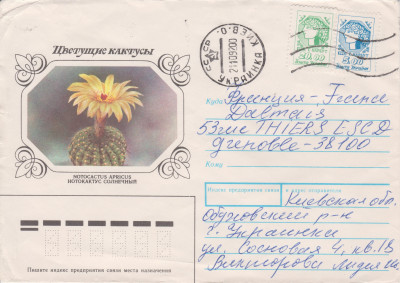 Цветущие кактусы
NOTOCACTUS APRICUS
НОТОКАКТУС СОЛНЕЧНЫЙ
Пишите индекс предприятия связи места назначения
СССР
УКРАИНКА
Куда Франция - France
53 rue THIERS ESCD
Grenoble - 38100
Кому
Индекс предприятия связи и адрес отправителя
Киевская обл.
Обуховский р-н
г. Украинка
ул. Сосновая 4, кв. 1В
Викторова Лидия